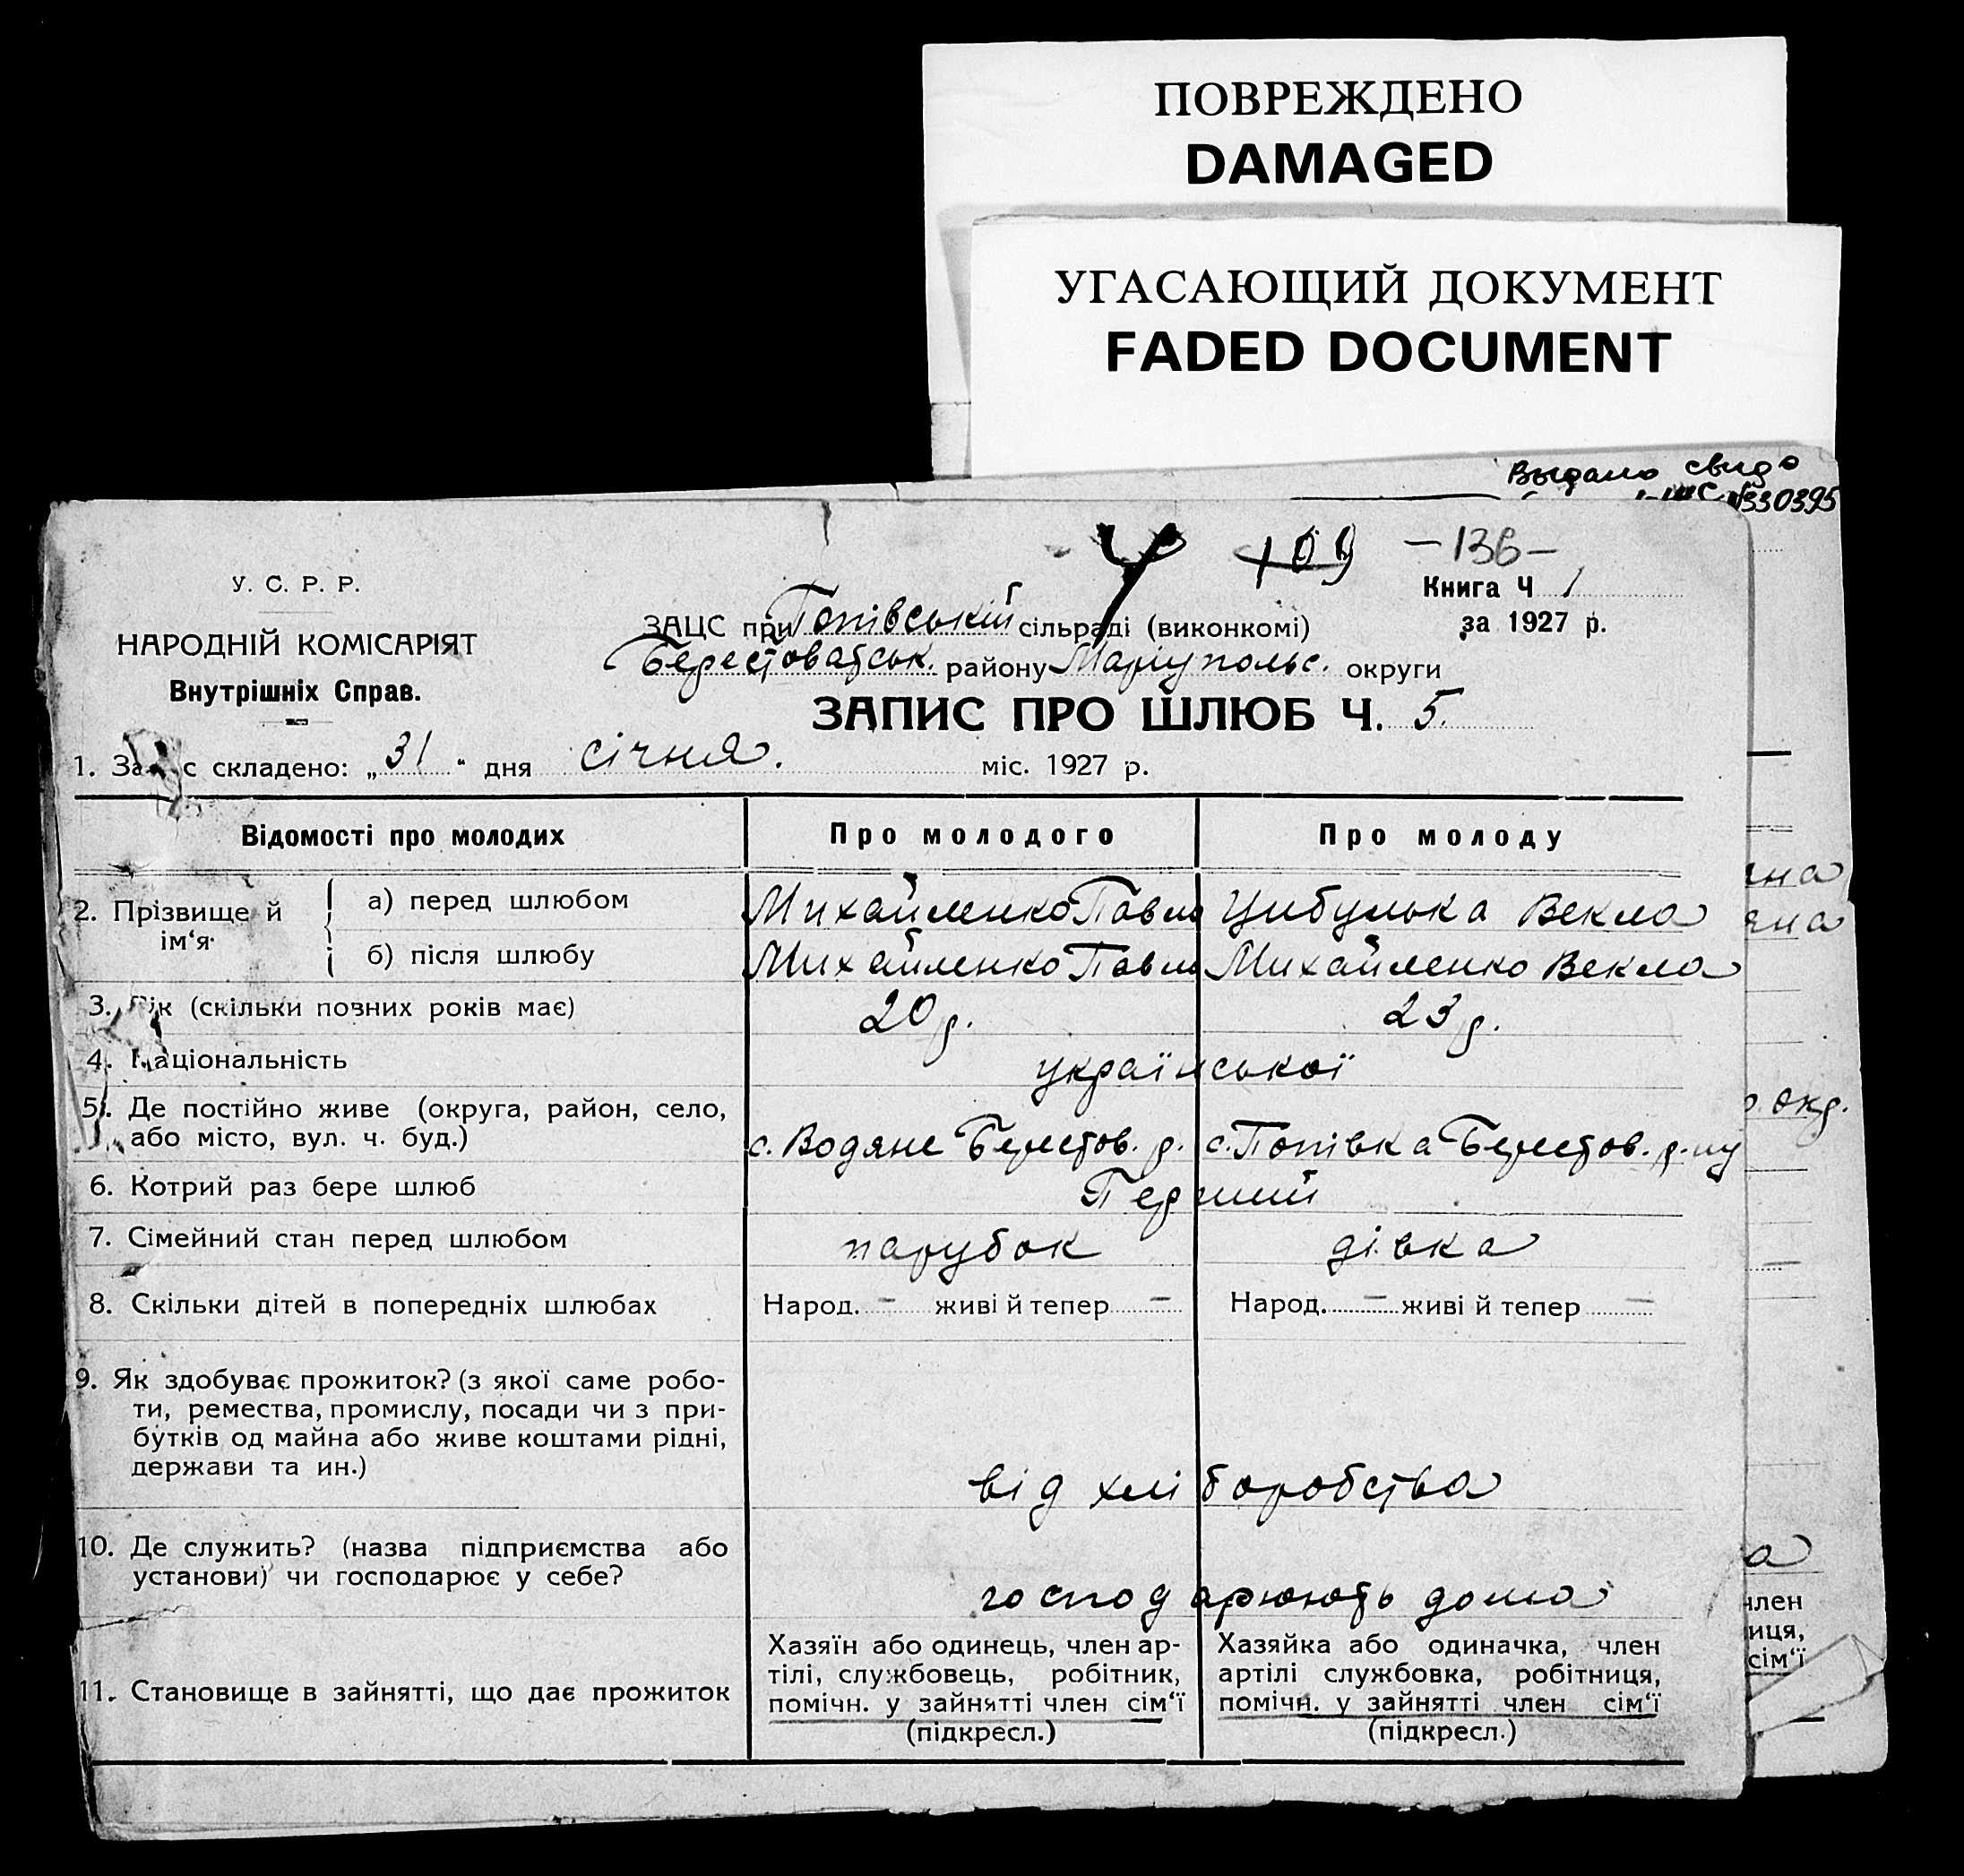 ПОВРЕЖДЕНО
DAMAGED
УГАСАЮЩИЙ ДОКУМЕНТ
FADED DOCUMENT
Выдано свидо
330395
109 -136-
У. С. Р. Р.
Книга Ч 1
за 1927 р.
НАРОДНІЙ КОМІСАРІЯТ
Внутрішніх Справ.
ЗАЦС при Попівській сільраді (виконкомі)
Берестоватськ. району Маріупольс. округи
ЗАПИС ПРО ШЛЮБ Ч. 5.
1. Запис складено: „31" дня січня. міс. 1927 р.
Відомості про молодих
Про молодого
Про молоду
2. Прізвище й ім‘я
а) перед шлюбом
Михайленко Павло
Цибулька Векла
б) після шлюбу
Михайленко Павло
Михайленко Векла
3. Вік (скільки повних років має)
20 р.
23 р.
4. Національність
української
5. Де постійно живе (округа, район, село,
або місто, вул. ч. буд.)
с. Водяне Берестов. р.
с. Попівка Берестов. р-ну
6. Котрий раз бере шлюб
Перший
7. Сімейний стан перед шлюбом
парубок
дівка
8. Скільки дітей в попередніх шлюбах
Народ. – живі й тепер –
Народ. – живі й тепер –
9. Як здобуває прожиток? (з якої саме робо-
ти, ремества, промислу, посади чи з при-
бутків од майна або живе коштами рідні,
держави та ин.)
від хліборобства
10. Де служить? (назва підприємства або
установи) чи господарює у себе?
господарюють дома
11. Становище в зайнятті, що дає прожиток
Хазяїн або одинець, член ар-
тілі, службовець, робітник,
помічн. у зайнятті член сім‘ї
(підкресл.)
Хазяйка або одиначка, член
артілі службовка, робітниця,
помічн. у зайнятті член сім‘ї
(підкресл.)
окр.
член
иця,
сім‘ї